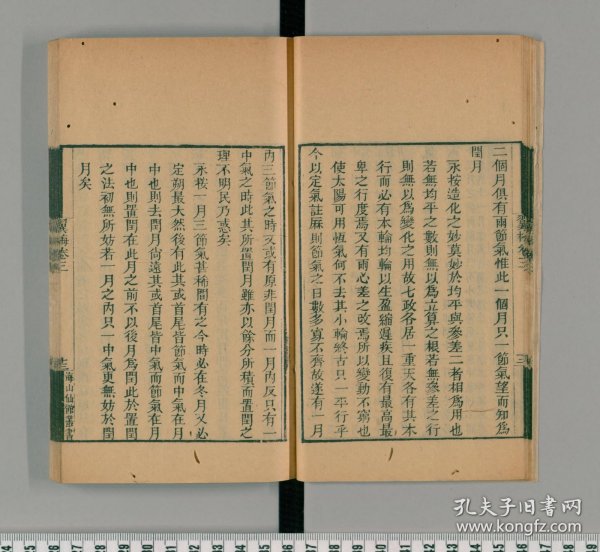 二個月俱有兩節氣惟此一個月只一節氣望而知為
閏月
永按造化之妙莫妙於均平與參差二者相為用也
若無均平之數則無以為立算之根若無參差之行
則無以為變化之用故七政各居一重天各有其本
行而必有本輪均輪以生盈縮遲疾且復有最高最
卑之行度焉又有兩心差之改焉所以變動不窮也
使太陽可用恆氣何不去其小輪終古只一平行乎
今以定氣註厤則節氣之日數多寡不齊故遂有一月
內三節氣之時又或有原非閏月而一月內反只有一
中氣之時此其所置閏月雖亦以餘分所積而置閏之
理不明民乃惑矣
永按一月三節氣甚稀間有之今時必在冬月又必
定朔最大然後有此其或首尾皆節氣而中氣在月
中也則去閏月尚遠其或首尾皆中氣而節氣在月
中也則置閏在此月之前不以後月為閏此於置閏
之法初無所妨若一月之內只一中氣更無妨於閏
月矣
翼梅卷三
十三
海山仙館叢書
孔夫子旧书网
www.kongfz.com
24 25 26 27 28 29 30 31 32 33 34 35 36 37 38 39 40 41 42 43 44 45 46 47 48 49